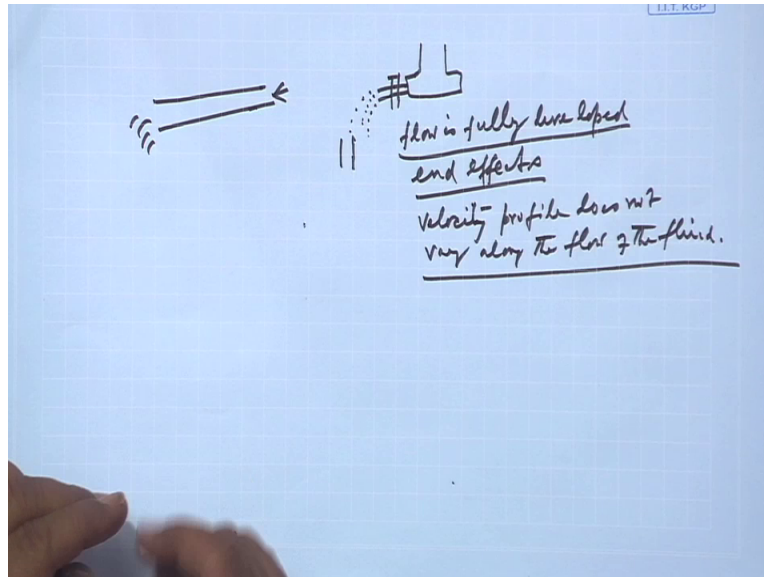 I.I.T. KGP
flow is fully developed
end effects
velocity profile does not
vary along the flow of the fluid.